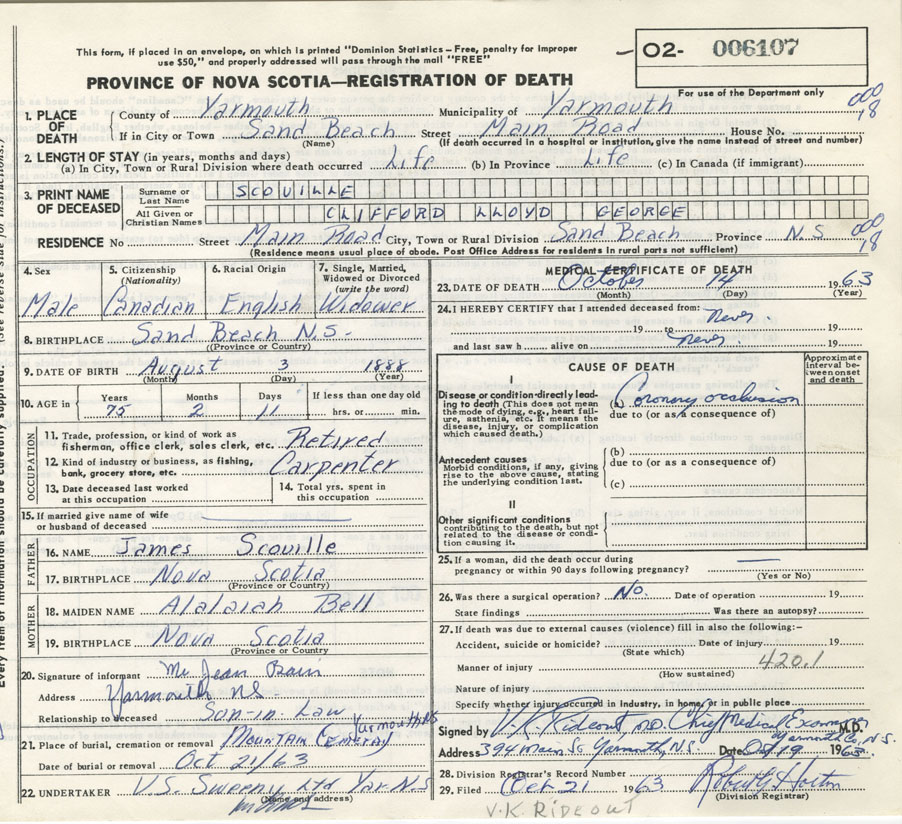 This form, if placed in an envelope, on which is printed "Dominion Statistics—Free, penalty for improper
use $50," and properly addressed will pass through the mail "FREE"
O2- 006107
PROVINCE OF NOVA SCOTIA—REGISTRATION OF DEATH
For use of the Department only
000
18
1. PLACE OF DEATH
County of Yarmouth Municipality of Yarmouth
If in City or Town Sand Beach Street Main Road House No.
(Name) (If death occurred in a hospital or institution, give the name instead of street and number)
2. LENGTH OF STAY (in years, months and days)
(a) In City, Town or Rural Division where death occurred Life (b) In Province Life (c) In Canada (if immigrant)
3. PRINT NAME OF DECEASED
Surname or Last Name SCOVILLE
All Given or Christian Names CLIFFORD LLOYD GEORGE
000
18
RESIDENCE No Street Main Road City, Town or Rural Division Sand Beach Province N.S
(Residence means usual place of abode. Post Office Address for residents in rural parts not sufficient)
4. Sex Male
5. Citizenship (Nationality) Canadian
6. Racial Origin English
7. Single, Married, Widowed or Divorced (write the word) Widower
8. BIRTHPLACE Sand Beach N.S-
(Province or Country)
9. DATE OF BIRTH August 3 1888
(Month) (Day) (Year)
10. AGE in Years Months Days If less than one day old
75 2 11 hrs. or min.
OCCUPATION
11. Trade, profession, or kind of work as
fisherman, office clerk, sales clerk, etc. Retired
12. Kind of industry or business, as fishing,
bank, grocery store, etc. Carpenter
13. Date deceased last worked
at this occupation
14. Total yrs. spent in
this occupation
15. If married give name of wife
or husband of deceased
FATHER
16. NAME James Scoville
17. BIRTHPLACE Nova Scotia
(Province or Country)
MOTHER
18. MAIDEN NAME Bell
19. BIRTHPLACE Nova Scotia
(Province or Country)
20. Signature of informant Jean
Address Yarmouth NS
Relationship to deceased Son-in Law
21. Place of burial, cremation or removal Mountain Cemetray Yarmouth NS
Date of burial or removal Oct 21/63
22. UNDERTAKER V.S. Sweeny Ltd Yar. N.S
(Name and address)
MEDICAL CERTIFICATE OF DEATH
23. DATE OF DEATH October 14 1963
(Month) (Day) (Year)
24. I HEREBY CERTIFY that I attended deceased from: never.
19 to 19
and last saw h alive on never. 19
CAUSE OF DEATH
Approximate interval between onset and death
I
Disease or condition directly leading to death (This does not
mean the mode of dying, e.g., heart failure, asthenia, etc. It means the
disease, injury, or complication
which caused death.)
(a) Coronary occlusion
due to (or as a consequence of)
Antecedent causes
Morbid conditions, if any, giving
rise to the above cause, stating
the underlying condition last.
(b)
due to (or as a consequence of)
(c)
II
Other significant conditions
contributing to the death, but not
related to the disease or condition
causing it.
25. If a woman, did the death occur during
pregnancy or within 90 days following pregnancy?
(Yes or No)
26. Was there a surgical operation? No. Date of operation 19
State findings Was there an autopsy?
27. If death was due to external causes (violence) fill in also the following:-
Accident, suicide or homicide? Date of injury 19
(State which)
Manner of injury 420.1
(How sustained)
Nature of injury
Specify whether injury occurred in Industry, in home, or in public place
Signed by V.K. Rideout, M.D. Chief Medical Examiner M.D.
Yarmouth Co., N.S.
Address 394 Main St Yarmouth, N.S. Date Oct 19 1963
28. Division Registrar's Record Number
29. Filed Oct 21 1963 Horton
(Division Registrar)
V.K. RIDEOUT